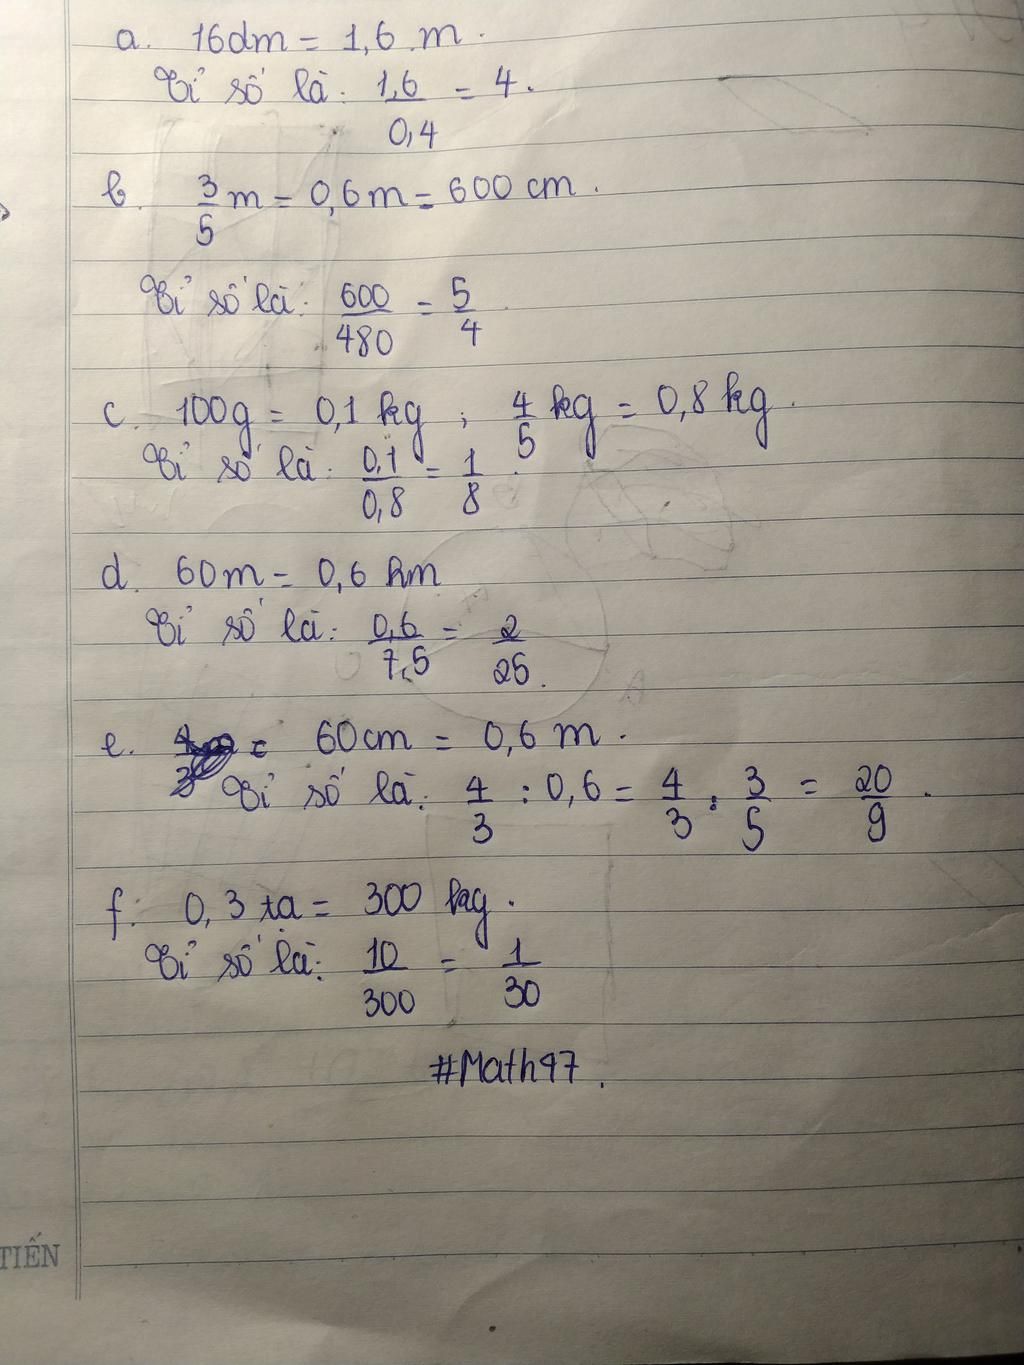 a. 16dm = 1,6 m.
Tỉ số là: 1,6/0,4 = 4.
b. 3/5 m = 0,6 m = 600 cm.
Tỉ số là: 600/480 = 5/4
c. 100g = 0,1 kg ; 4/5 kg = 0,8 kg.
Tỉ số là: 0,1/0,8 = 1/8.
d. 60m = 0,6 hm
Tỉ số là: 0,6/7,5 = 2/25.
e. 60cm = 0,6 m.
Tỉ số là: 4/3 : 0,6 = 4/3 : 3/5 = 20/9.
f. 0,3 tạ = 300 kg.
Tỉ số là: 10/300 = 1/30
#Math97.
TIẾN